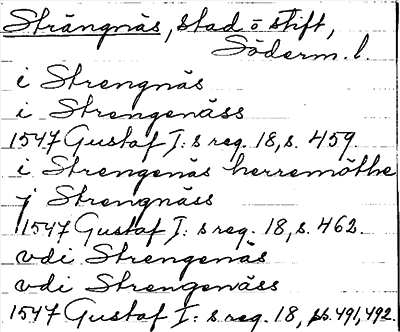 Strängnäs, stad o stift,
Söderm. l.
i Strengnäs
i Strengenäss
1547 Gustaf I:s reg. 18, s. 459.
i Strengenäs herremöthe
j Strengnäss
1547 Gustaf I:s reg. 18, s. 462.
vdi Strengenäs
vdi Strengenäss
1547 Gustaf I:s reg. 18, ss. 491, 492.